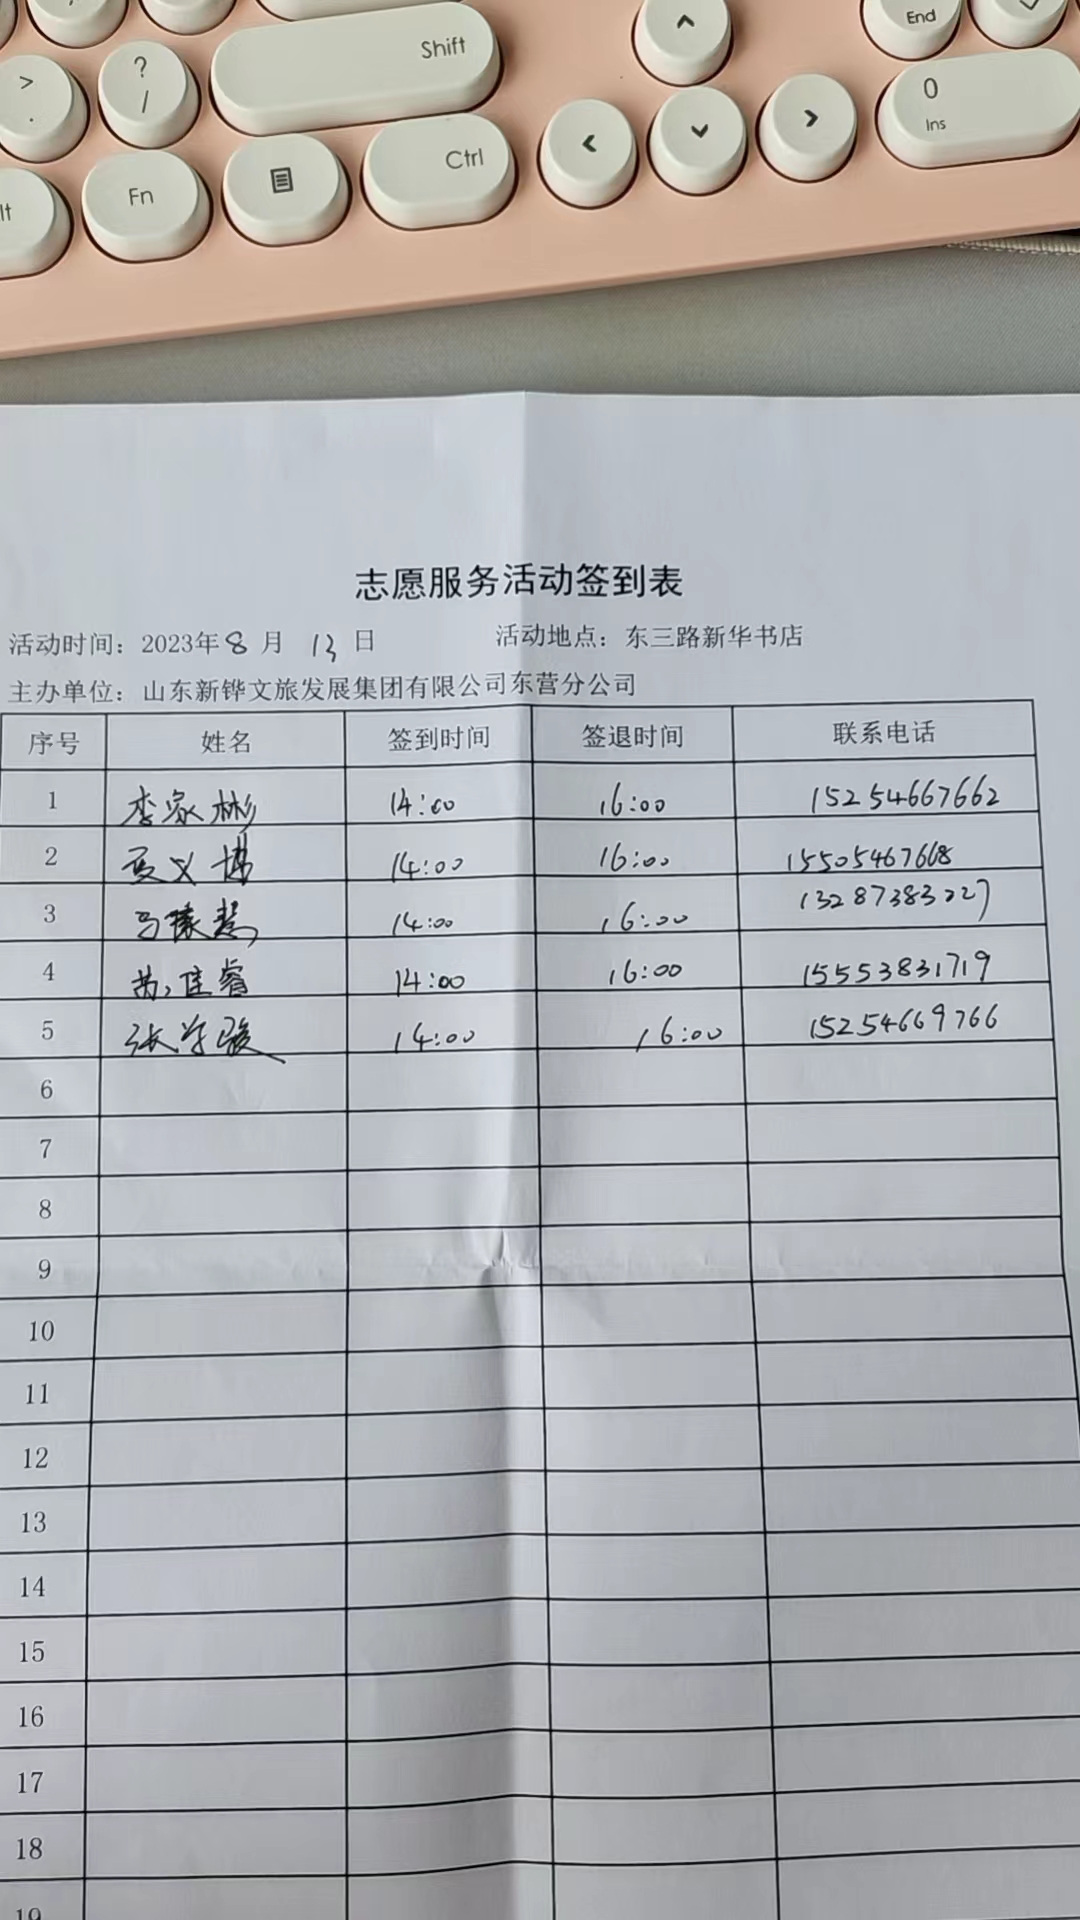 >
.
?
/
Shift
End
0
Ins
lt
Fn
Ctrl
志愿服务活动签到表
活动时间：2023年8月13日 活动地点：东三路新华书店
主办单位：山东新铧文旅发展集团有限公司东营分公司
序号 姓名 签到时间 签退时间 联系电话
1 李家彬 14:00 16:00 15254667662
2 义博 14:00 16:00 15505467668
3 马 慧 14:00 16:00 13287383227
4 佳睿 14:00 16:00 15553831719
5 张学骏 14:00 16:00 15254669766
6
7
8
9
10
11
12
13
14
15
16
17
18
19